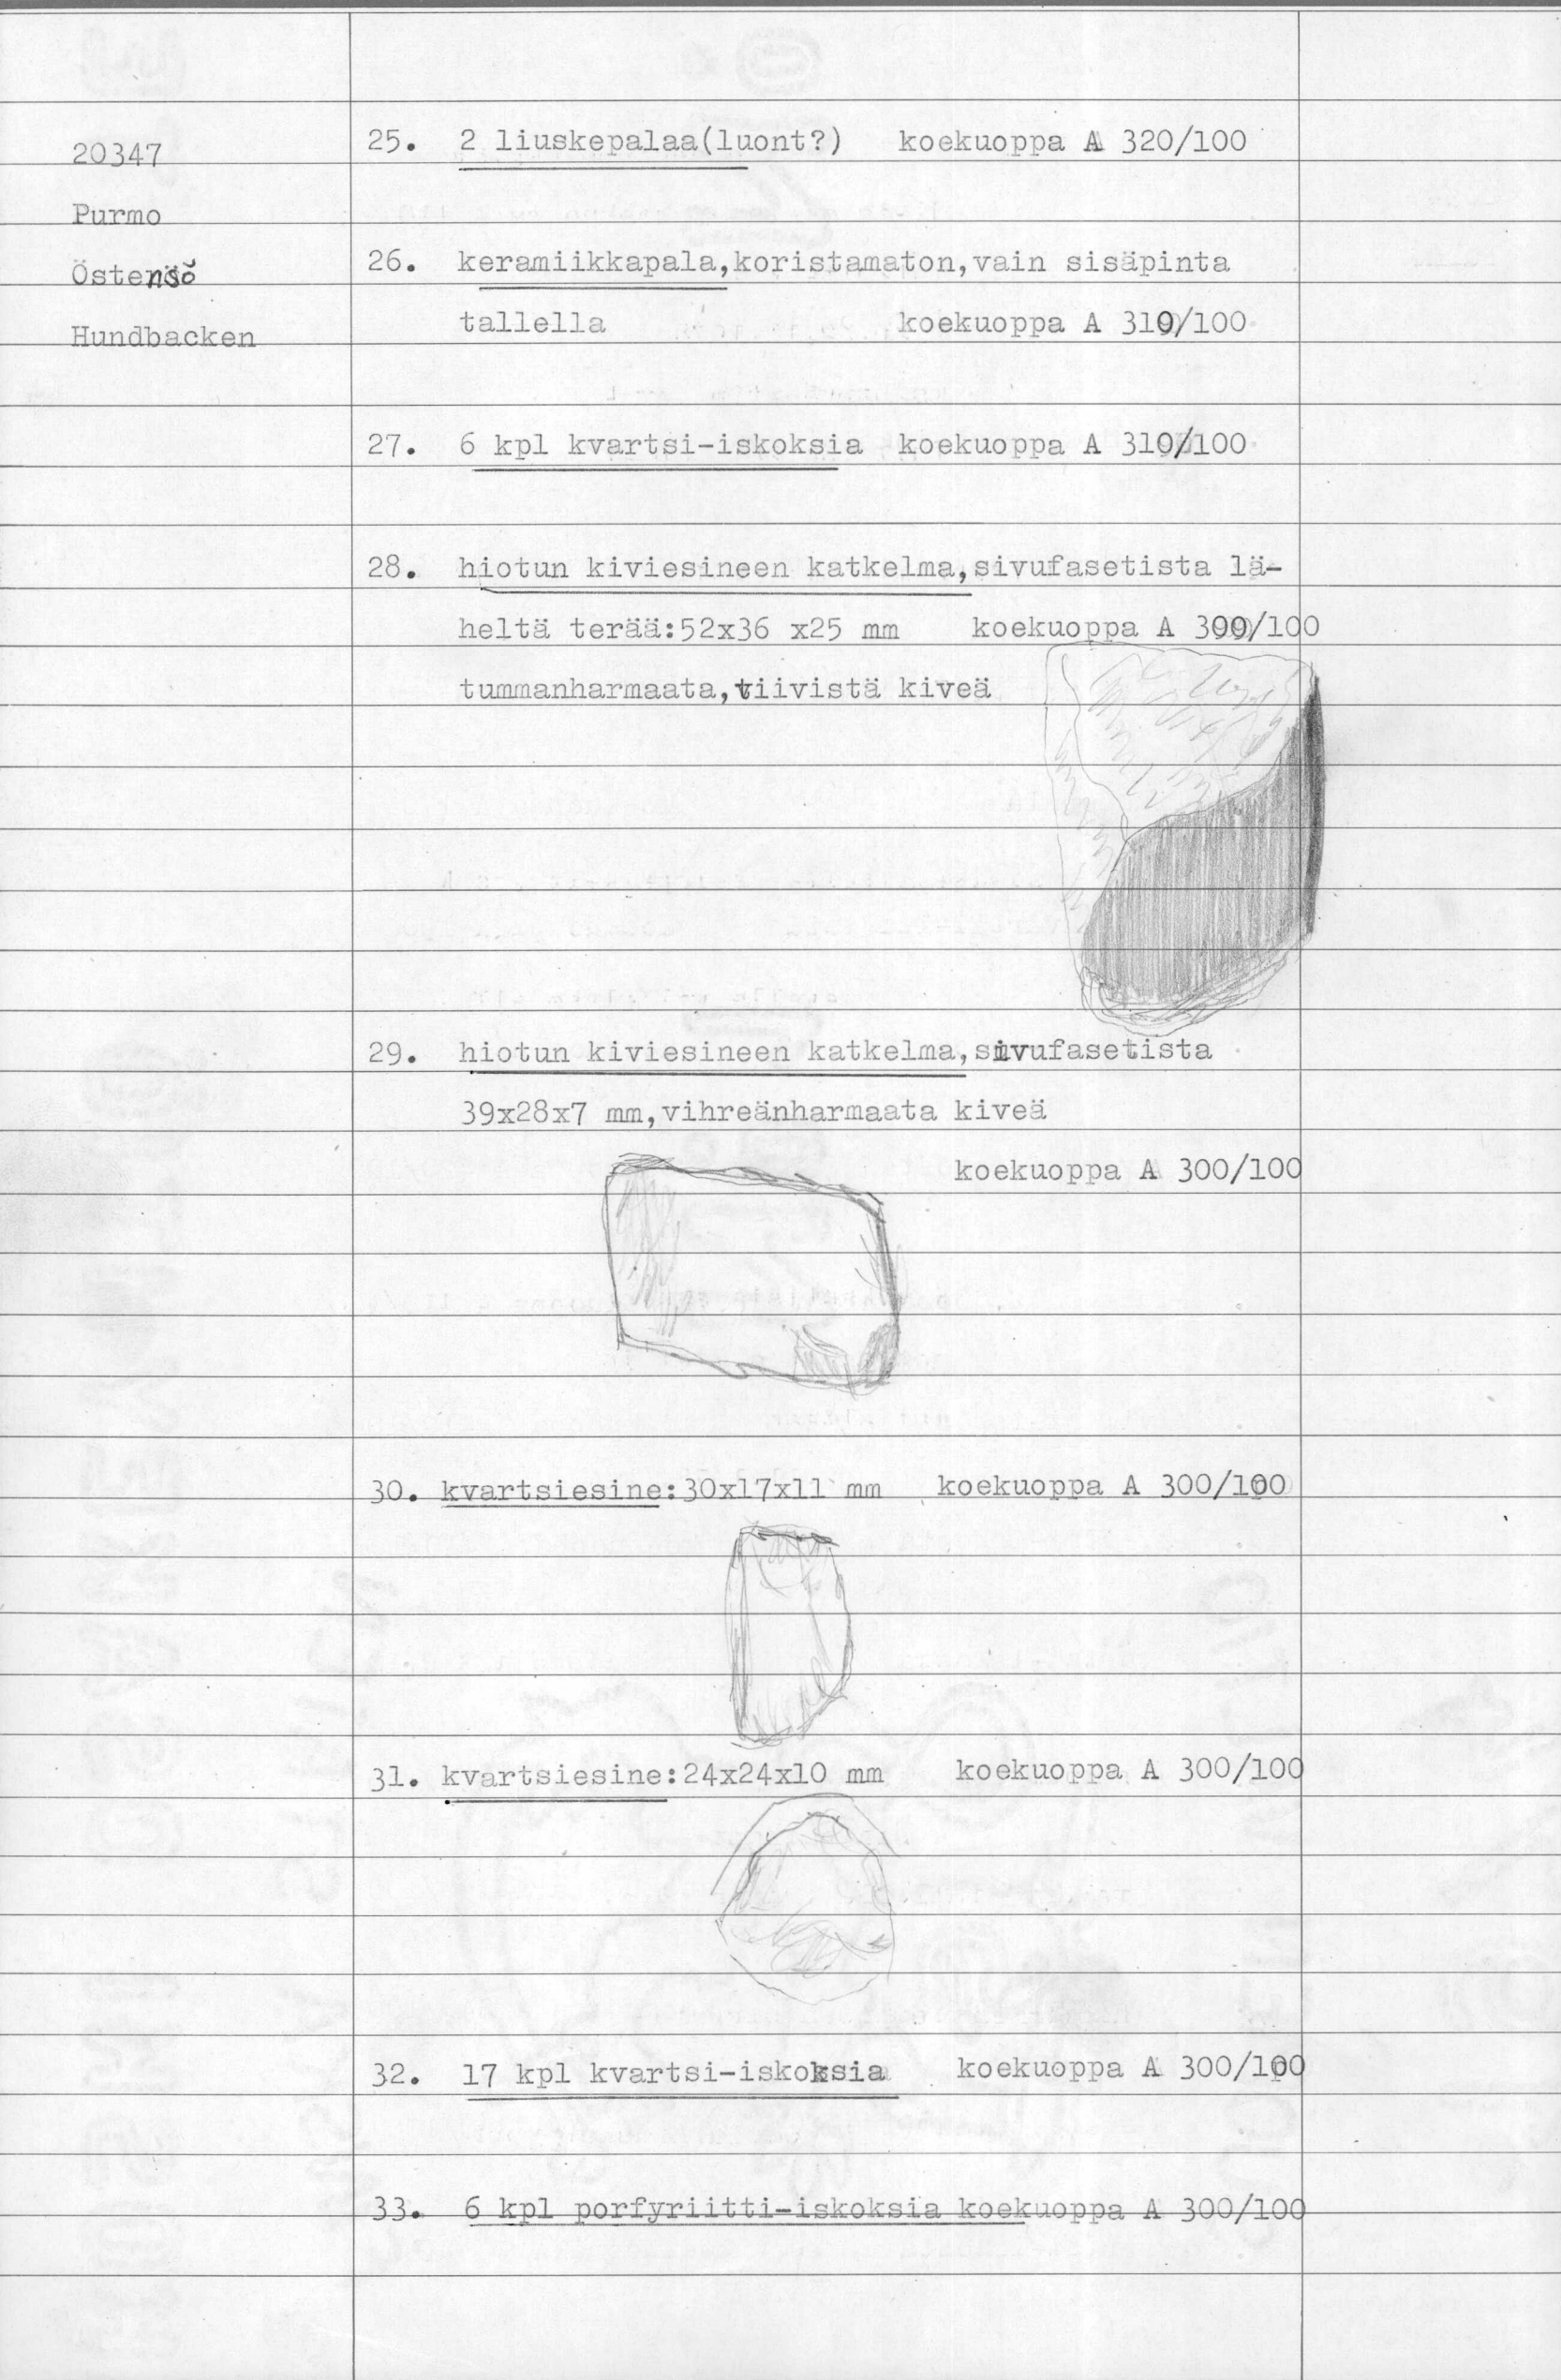 20347
Purmo
Östensö
Hundbacken
25. 2 liuskepalaa(luont?) koekuoppa A 320/100
26. keramiikkapala,koristamaton,vain sisäpinta
tallella koekuoppa A 310/100
27. 6 kpl kvartsi-iskoksia koekuoppa A 310/100
28. hiotun kiviesineen katkelma,sivufasetista lä-
heltä terää:52x36 x25 mm koekuoppa A 300/100
tummanharmaata,tiivistä kiveä
29. hiotun kiviesineen katkelma,sivufasetista
39x28x7 mm,vihreänharmaata kiveä
koekuoppa A 300/100
30. kvartsiesine:30x17x11 mm koekuoppa A 300/100
31. kvartsiesine:24x24x10 mm koekuoppa A 300/100
32. 17 kpl kvartsi-iskoksia koekuoppa A 300/100
33. 6 kpl porfyriitti-iskoksia koekuoppa A 300/100